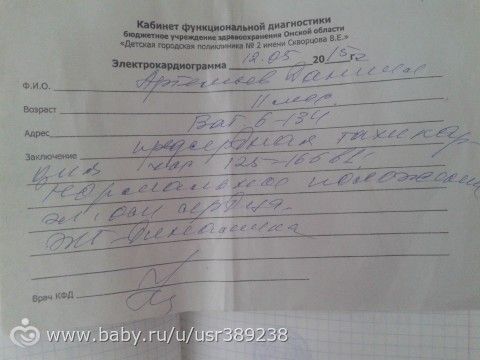 Кабинет функциональной диагностики
бюджетное учреждение здравоохранения Омской области
«Детская городская поликлиника № 2 имени Скворцова В.Е.»
Электрокардиограмма 12.05 2015г
Ф.И.О. Артемьев Даниил
Возраст 11 мес.
Адрес Ват-6-134
Заключение предсердная тахикар
дия чсс 125-166
Нормальное положение
эл. оси сердца.
ЭКГ-динамика
Врач КФД
www.baby.ru/u/usr389238